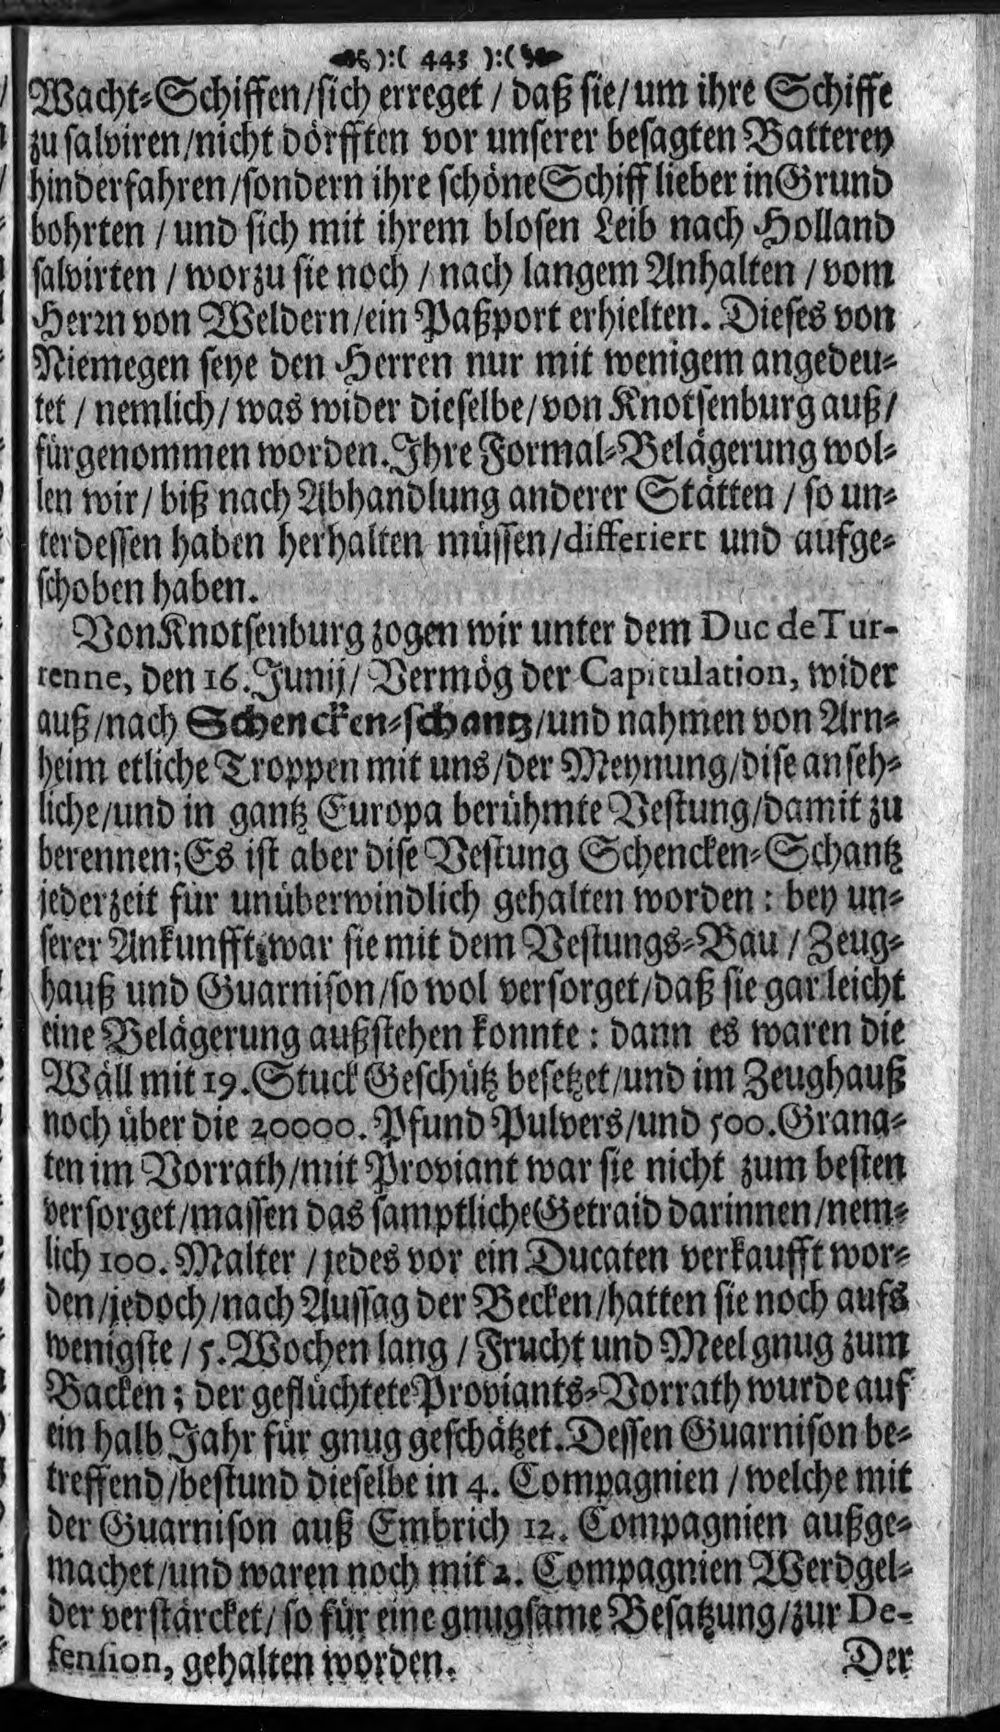 ):( 443 ):(
Wacht-Schiffen/sich erreget / daß sie/ um ihre Schiffe
zu salviren/nicht dörfften vor unserer besagten Batterey
hinderfahren/sondern ihre schöne Schiff lieber in Grund
bohrten / und sich mit ihrem blosen Leib nach Holland
salvirten / worzu sie noch / nach langem Anhalten / vom
Herrn von Weldern/ein Paßport erhielten. Dieses von
Niemegen seye den Herren nur mit wenigem angedeu-
tet / nemlich/ was wider dieselbe/ von Knotsenburg auß/
fürgenommen worden. Ihre Formal-Belägerung wol-
len wir/ biß nach Abhandlung anderer Stätten / so un-
terdessen haben herhalten müssen/differiert und aufge-
schoben haben.
Von Knotsenburg zogen wir unter dem Duc de Tur-
renne, den 16. Junij/ Vermög der Capitulation, wider
auß/nach Schencken-schantz/und nahmen von Arn-
heim etliche Troppen mit uns/der Meynung/dise anseh-
liche/und in gantz Europa berühmte Vestung/damit zu
berennen; Es ist aber dise Vestung Schencken-Schantz
jederzeit für unüberwindlich gehalten worden: bey un-
serer Ankunfft war sie mit dem Vestungs-Bau / Zeug-
hauß und Guarnison/so wol versorget/daß sie gar leicht
eine Belägerung außstehen konnte: dann es waren die
Wäll mit 19. Stuck Geschütz besetzet/und im Zeughauß
noch über die 20000. Pfund Pulvers/und 500. Grana-
ten im Vorrath/mit Proviant war sie nicht zum besten
versorget/massen das samptliche Getraid darinnen/nem-
lich 100. Malter / jedes vor ein Ducaten verkaufft wor-
den/jedoch/nach Aussag der Becken/hatten sie noch aufs
wenigste / 5. Wochen lang / Frucht und Meel gnug zum
Backen; der geflüchtete Proviants-Vorrath wurde auf
ein halb Jahr für gnug geschätzet. Dessen Guarnison be-
treffend/bestund dieselbe in 4. Compagnien / welche mit
der Guarnison auß Embrich 12. Compagnien außge-
machet/und waren noch mit 2. Compagnien Werdgel-
der verstärcket/ so für eine gnugsame Besatzung/zur De-
fension, gehalten worden.
Der